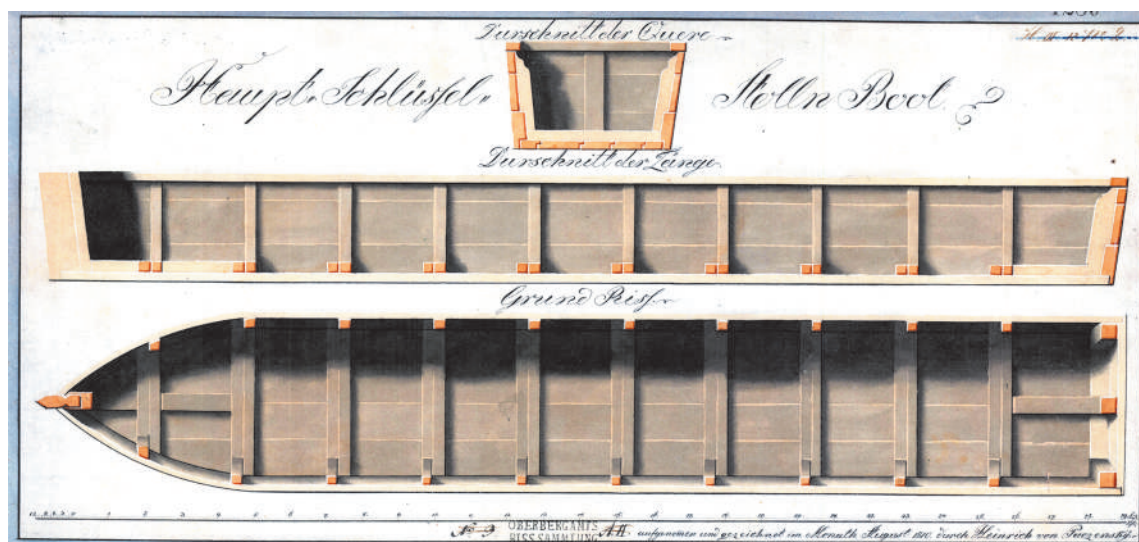 1236
Durschnitt der Quere
Haupt Schlüssel Stolln Boot
Durschnitt der Länge
Grund Riss
No 3 OBERBERGAMTS A II aufgenomen und gezeichnet im Monath August 1810. durch Heinrich von Paczensky
RISSSAMMLUNG